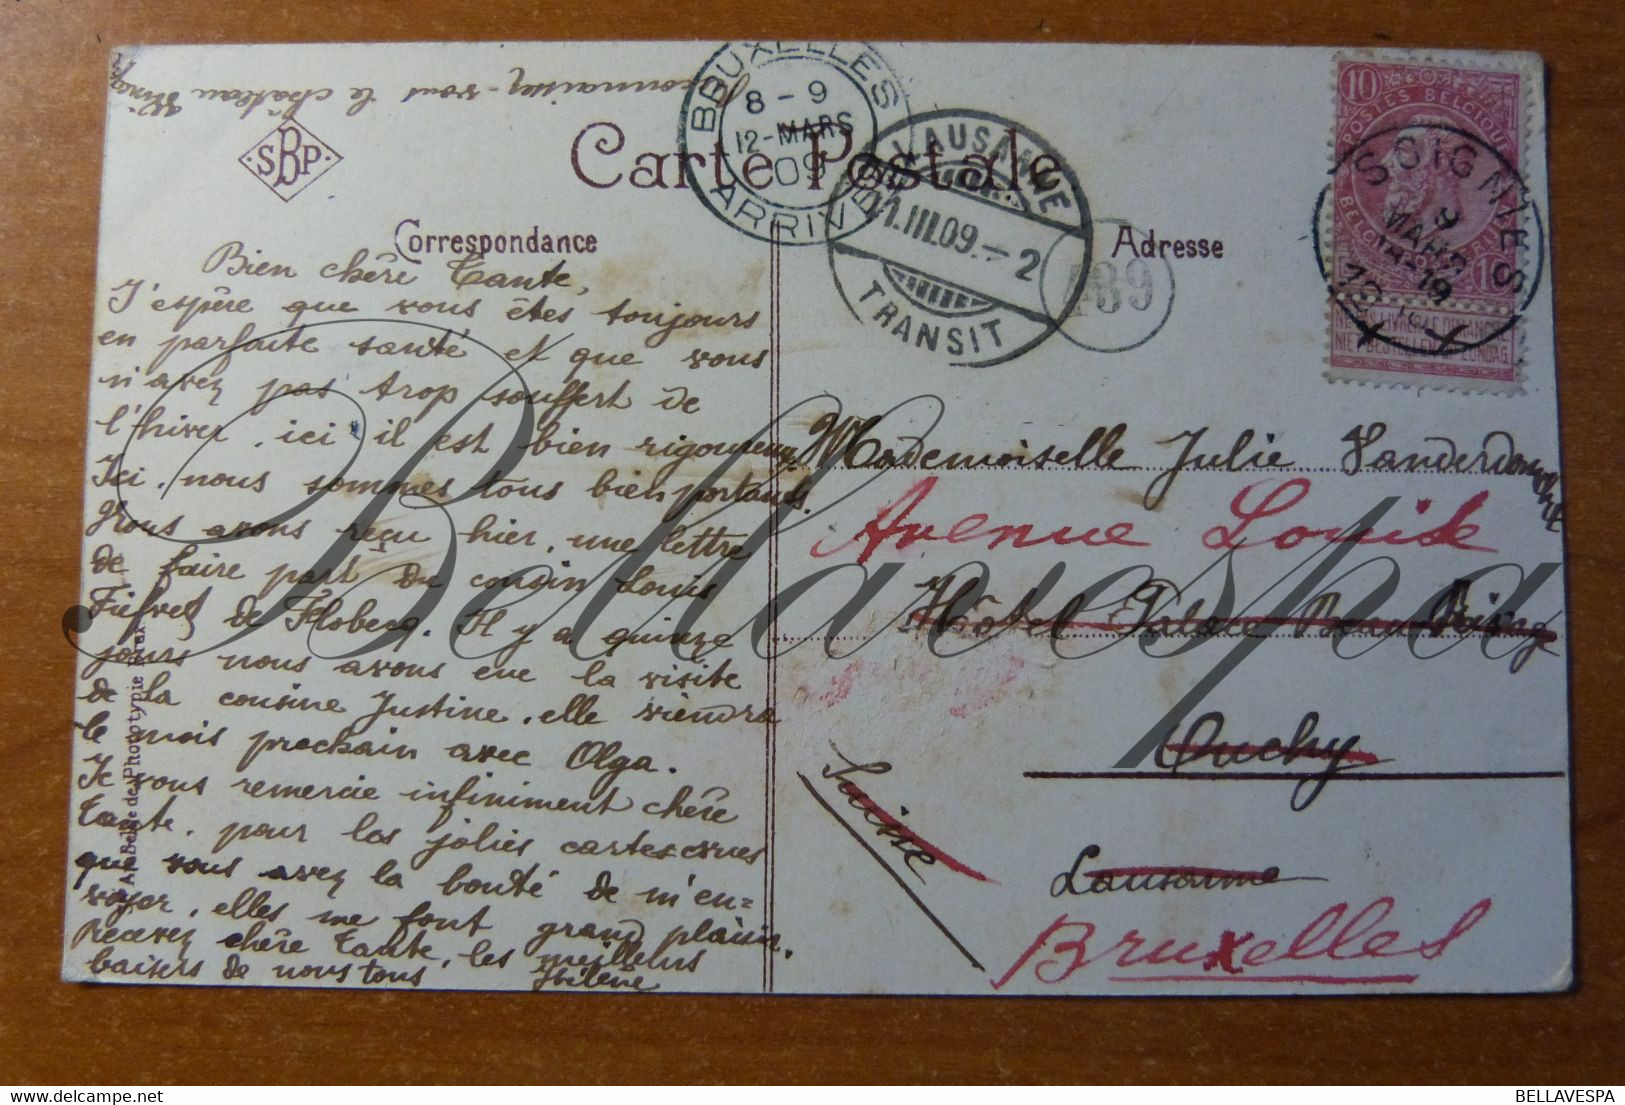 connaissez-vous le château
BRUXELLES
8 - 9
12-MARS
09
ARRIVEE
LAUSANNE
11.III.09.-2
TRANSIT
489
10
POSTES BELGIQUE
SOIGNIES
9
MARS
NE PAS LIVRER LE DIMANCHE
NIET BESTELLEN OP ZONDAG
SBP
Carte Postale
Correspondance
Adresse
Bien chère Tante,
J'espère que vous êtes toujours
en parfaite santé et que vous
n'avez pas trop souffert de
l'hiver, ici il est bien rigoureux.
Ici, nous sommes tous bien portants.
Nous avons reçu hier, une lettre
de faire part du cousin Louis
Fievez de Flobecq. Il y a quinze
jours nous avons eue la visite
de la cousine Justine, elle viendra
le mois prochain avec Olga.
Je vous remercie infiniment chère
Tante, pour les jolies cartes vues
que vous avez la bonté de m'en=
voyer, elles me font grand plaisir.
Recevez chère Tante, les meilleurs
baisers de nous tous Hélène
Mademoiselle Julie Vanderdonckt
Avenue Louise
Hôtel Palace Beau Rivage
Ouchy
Suisse
Lausanne
Bruxelles
Bellavespa
BELLAVESPA